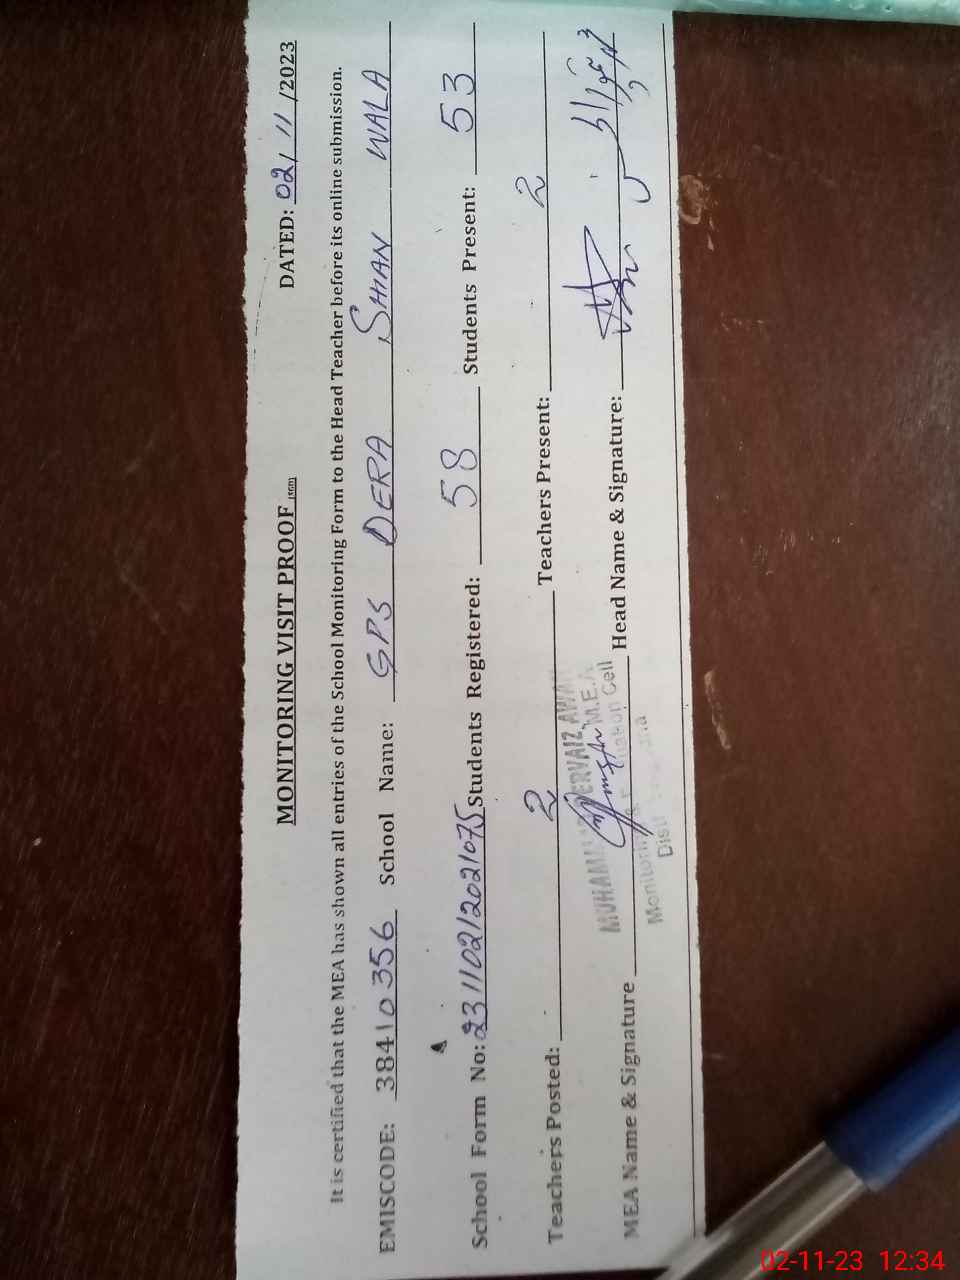 MONITORING VISIT PROOF
DATED: 02/11/2023
It is certified that the MEA has shown all entries of the School Monitoring Form to the Head Teacher before its online submission.
EMISCODE: 38410356 School Name: GPS DERA SHIAN WALA
School Form No: 23110212021075 Students Registered: 58 Students Present: 53
Teachers Posted: 2 Teachers Present: 2
MEA Name & Signature Head Name & Signature:
PERVAIZ AWAN
M.E.A
Cell
02-11-23 12:34